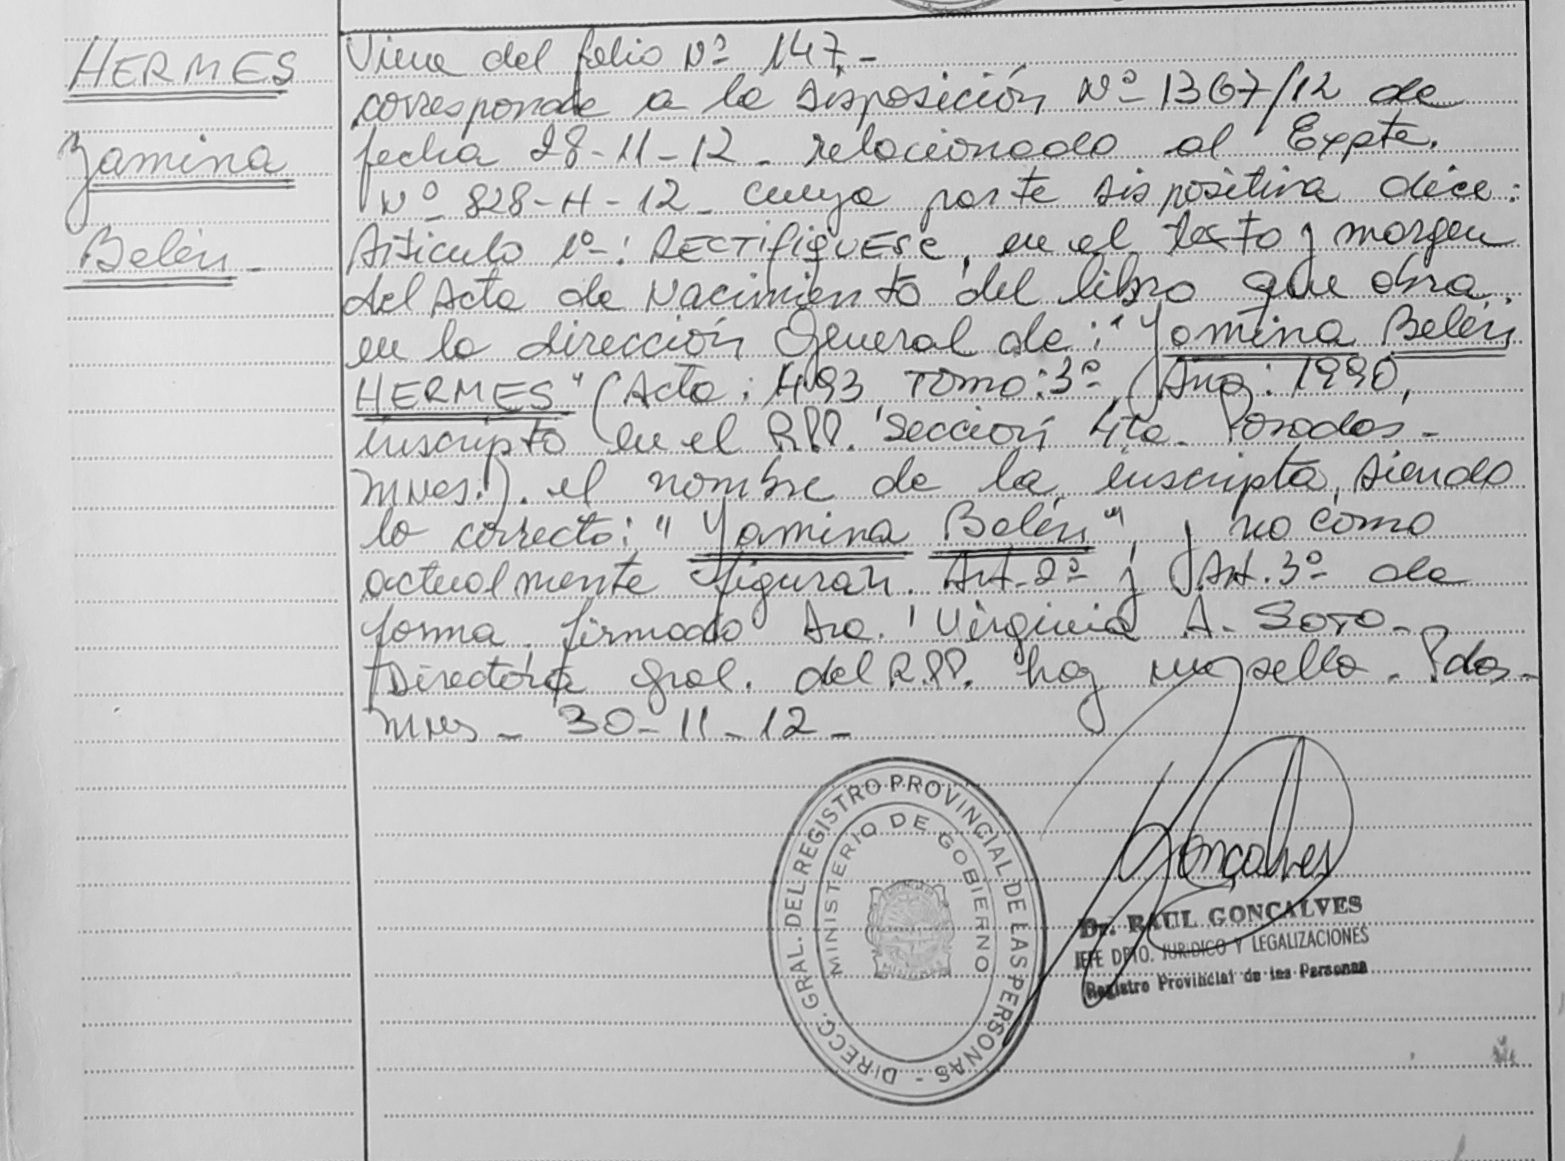 HERMES
Yamina
Belén -
Viene del folio Nº 147.-
corresponde a la disposición Nº 1367/12 de
fecha 28-11-12 - relacionado al Expte.
Nº 828-H-12 - cuya parte dispositiva dice:
Artículo 1º-: RECTIFIQUESE, en el texto y margen
del Acta de Nacimiento del libro que obra
en la dirección General de: "Yamina Belén
HERMES" (Acta: 493, Tomo: 3º, Año: 1990,
inscripto en el R.P.P. Sección 4ta - Posadas -
Mnes.). el nombre de la inscripta, siendo
lo correcto: "Yamina Belén", y no como
actualmente figuran. Art. 2º y Art. 3º de
forma. firmado Dra. Virginia A. SOTO -
Directora Gral. del R.P.P. hay un sello. Pdas -
Mnes - 30-11-12 -
DIRECC. GRAL. DEL REGISTRO PROVINCIAL DE LAS PERSONAS -
MINISTERIO DE GOBIERNO
Gonçalves
Dr. RAUL GONÇALVES
JEFE DPTO. JURIDICO Y LEGALIZACIONES
Registro Provincial de las Personas